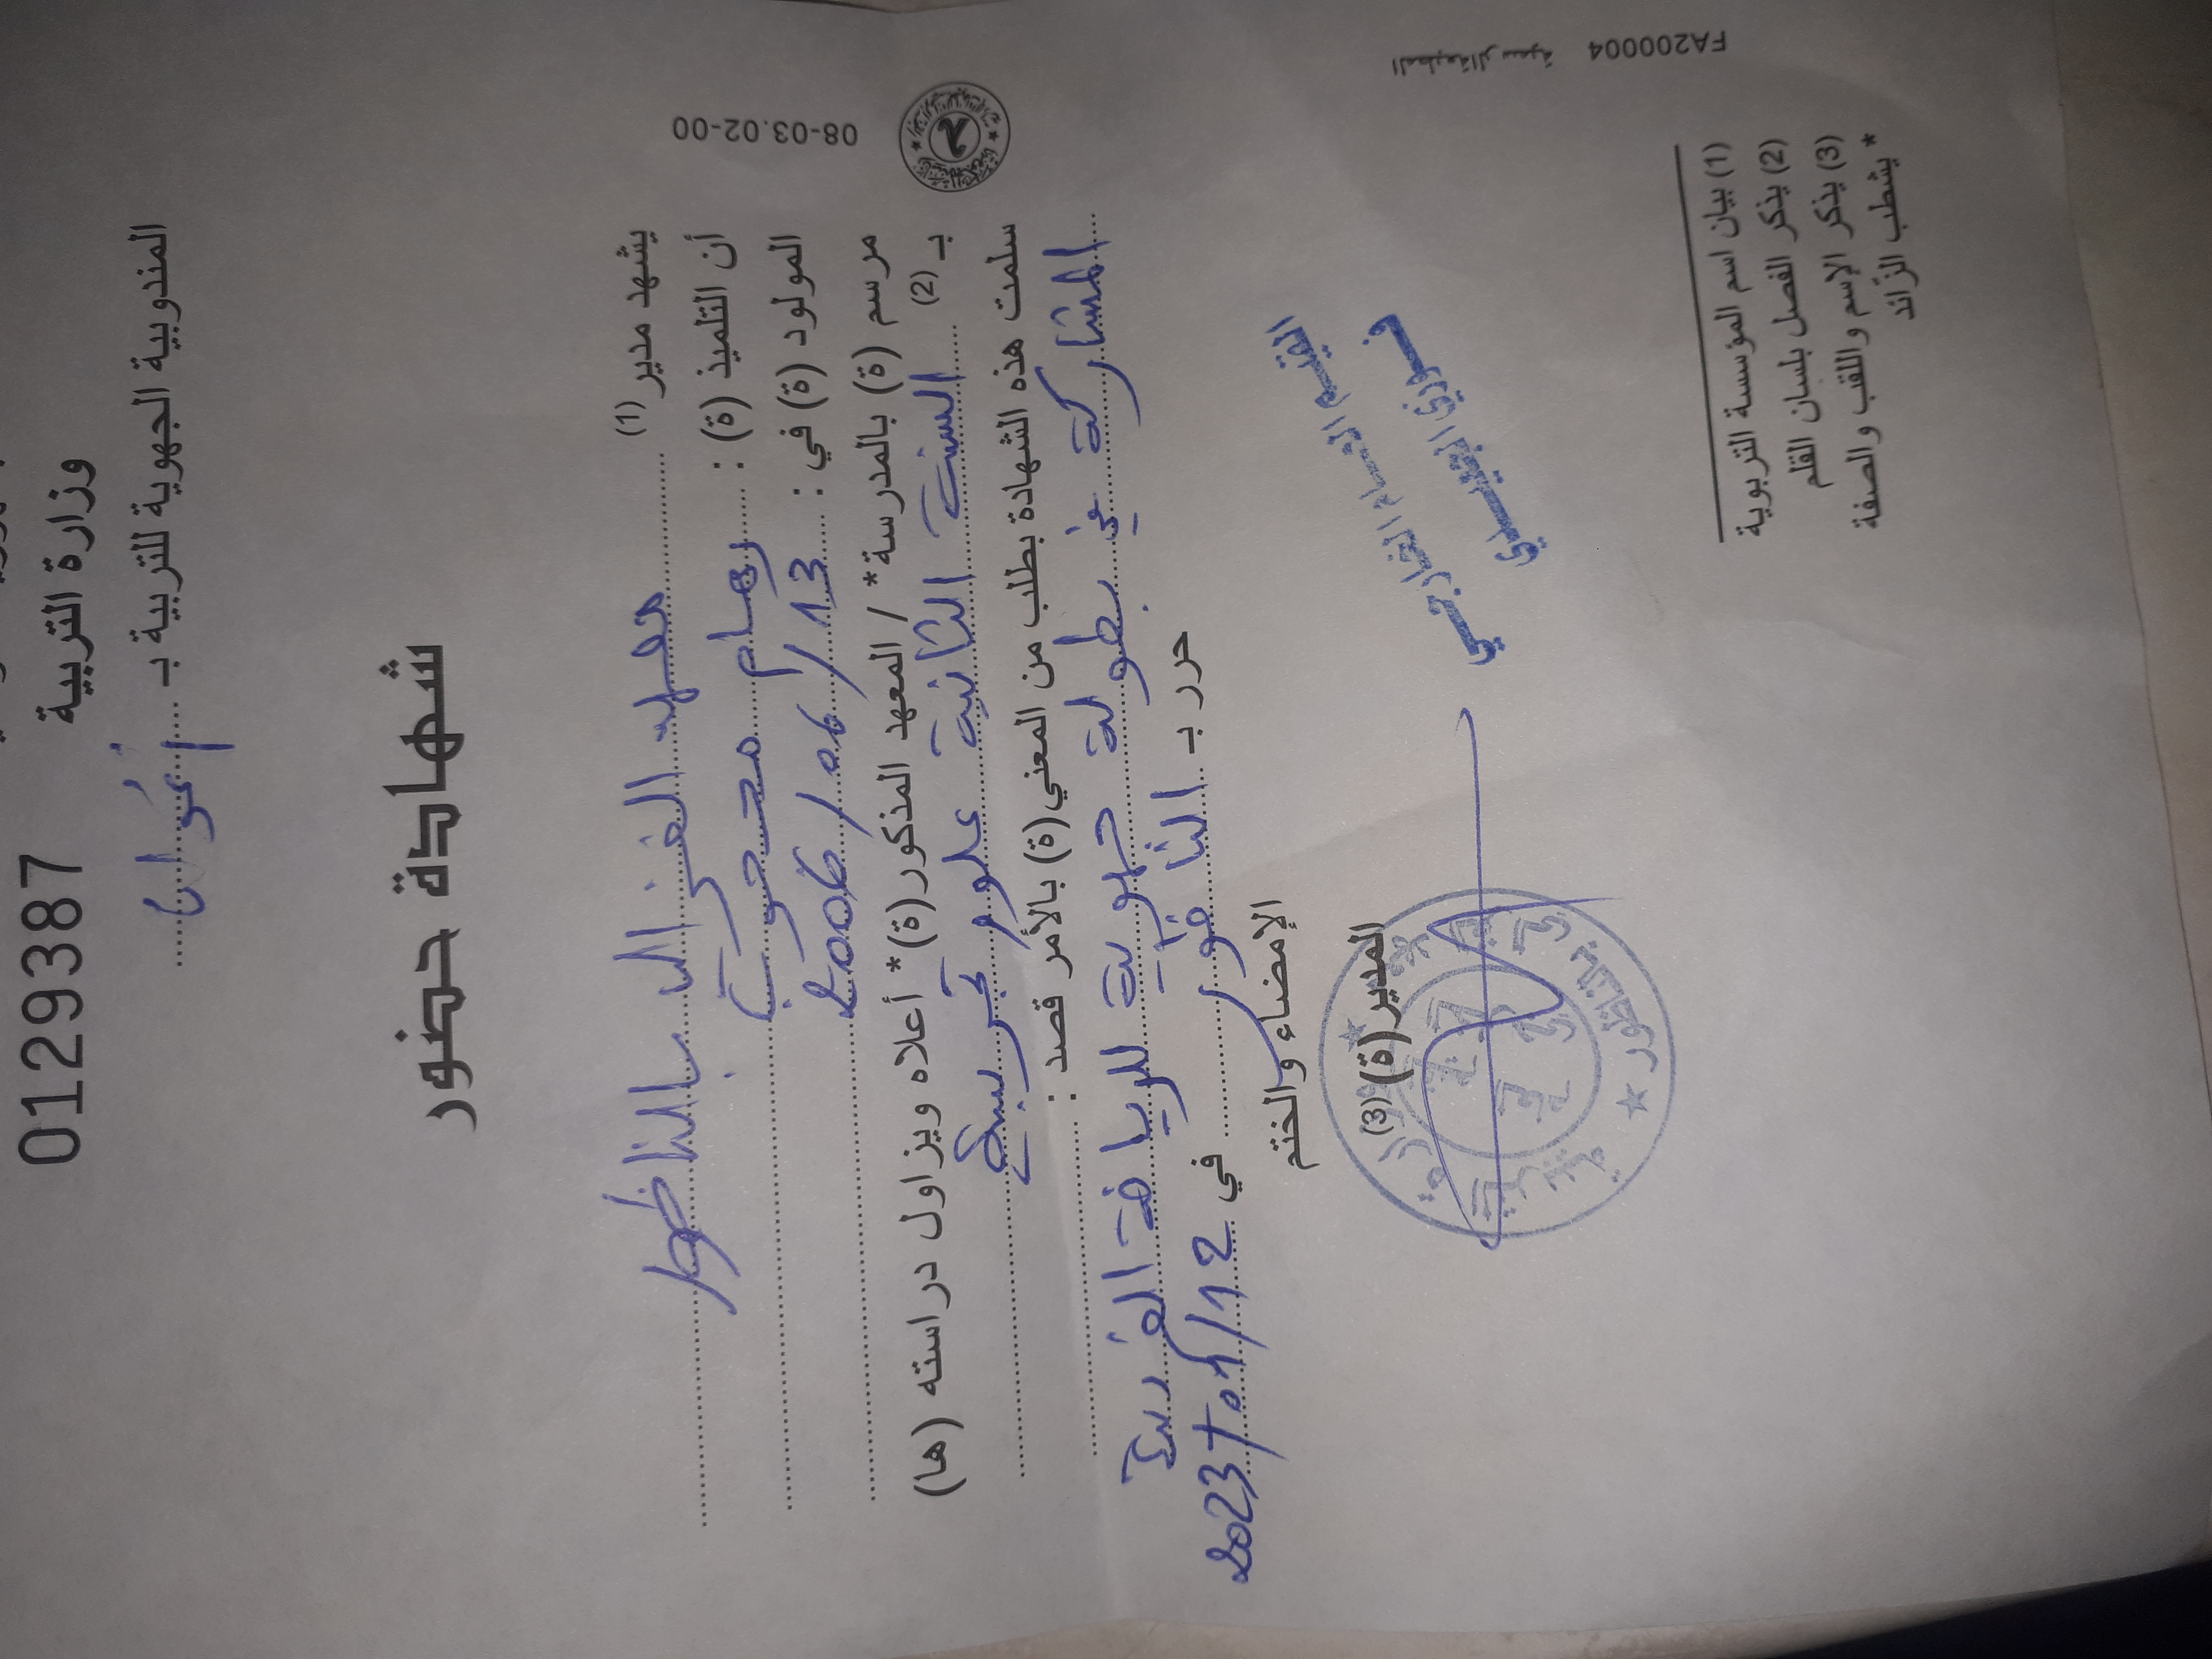 0129387
وزارة التربية
المندوبية الجهوية للتربية بـ
شهادة حضور
08-03.02-00
يشهد مدير (1) معهد الغزالي بالناظور
أن التلميذ (ة) : رهام محجوب
المولود (ة) في : 13/06/2006
مرسم (ة) بالمدرسة* / المعهد المذكور(ة)* أعلاه ويزاول دراسته (ها)
بـ (2) السنة الثانية علوم تجريبية
سلمت هذه الشهادة بطلب من المعني(ة) بالأمر قصد :
المشاركة في بطولة جهوية للرياضة الفردية
حرر بـ الناظور في 12/01/2023
الإمضاء والختم
المدير(ة) (3)
القيم العام الخارجي
فوزي
(1) بيان اسم المؤسسة التربوية
(2) يذكر الفصل بلسان القلم
(3) يذكر الإسم واللقب والصفة
* يشطب الزائد
المطبعة الرسمية FA200004